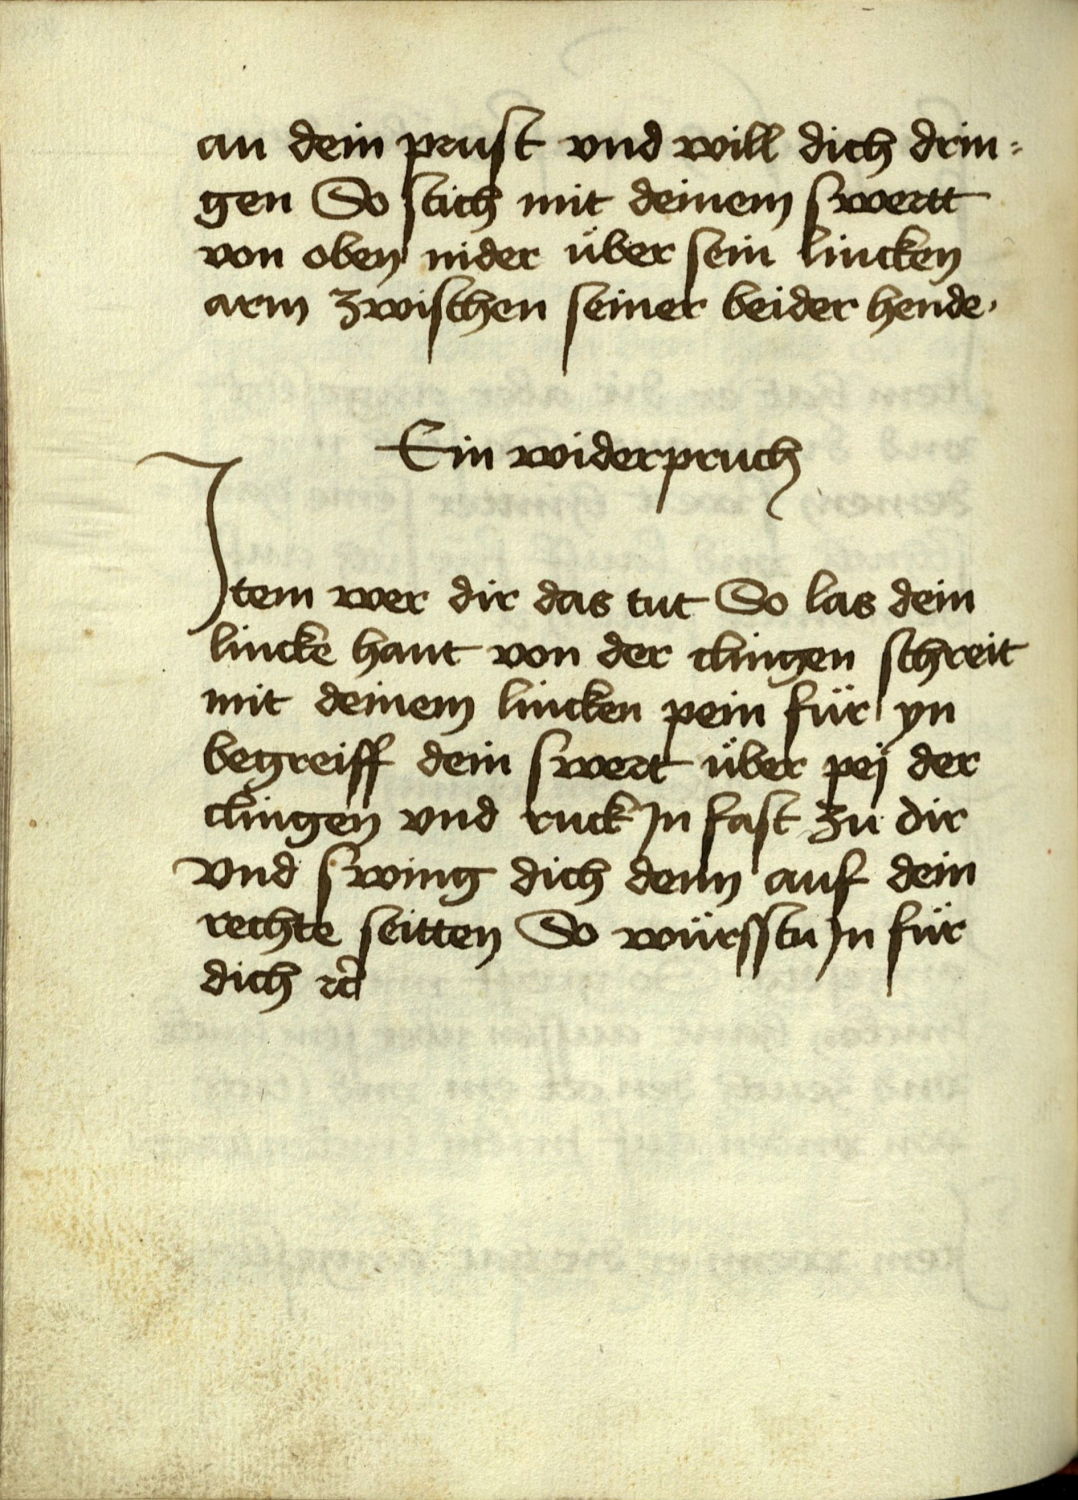 an dein prust vnd will dich drin⸗
gen So stich mit deinem swertt
von oben nider über sein lincken
arm zwischen seiner beider hende.
Ein widerpruch
Item wer dir das tut So las dein
lincke hant von der clingen schreit
mit deinem lincken pein für yn
begreiff dein swert über pej der
clingen vnd ruck jn fast zu dir
vnd swing dich denn auf dein
rechte seitten So würsstu jn für
dich ꝛc̃